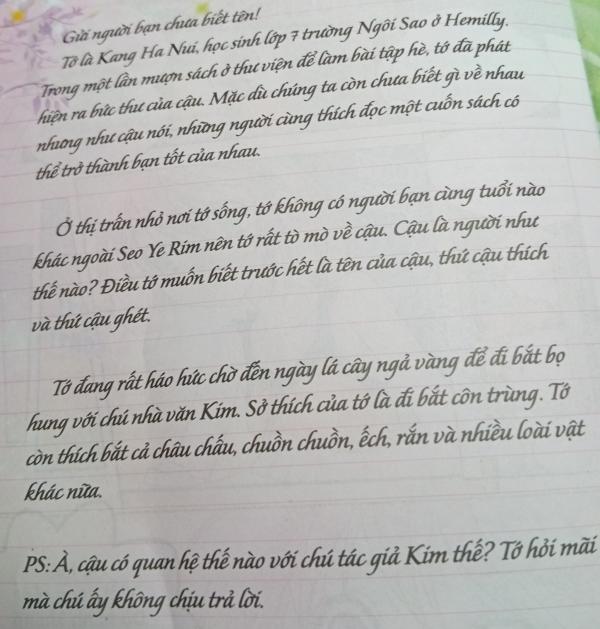 Gửi người bạn chưa biết tên!
Tớ là Kang Ha Nui, học sinh lớp 7 trường Ngôi Sao ở Hemilly.
Trong một lần mượn sách ở thư viện để làm bài tập hè, tớ đã phát
hiện ra bức thư của cậu. Mặc dù chúng ta còn chưa biết gì về nhau
nhưng như cậu nói, những người cùng thích đọc một cuốn sách có
thể trở thành bạn tốt của nhau.
Ở thị trấn nhỏ nơi tớ sống, tớ không có người bạn cùng tuổi nào
khác ngoài Seo Ye Rim nên tớ rất tò mò về cậu. Cậu là người như
thế nào? Điều tớ muốn biết trước hết là tên của cậu, thứ cậu thích
và thứ cậu ghét.
Tớ đang rất háo hức chờ đến ngày lá cây ngả vàng để đi bắt bọ
hung với chú nhà văn Kim. Sở thích của tớ là đi bắt côn trùng. Tớ
còn thích bắt cả châu chấu, chuồn chuồn, ếch, rắn và nhiều loài vật
khác nữa.
PS: À, cậu có quan hệ thế nào với chú tác giả Kim thế? Tớ hỏi mãi
mà chú ấy không chịu trả lời.